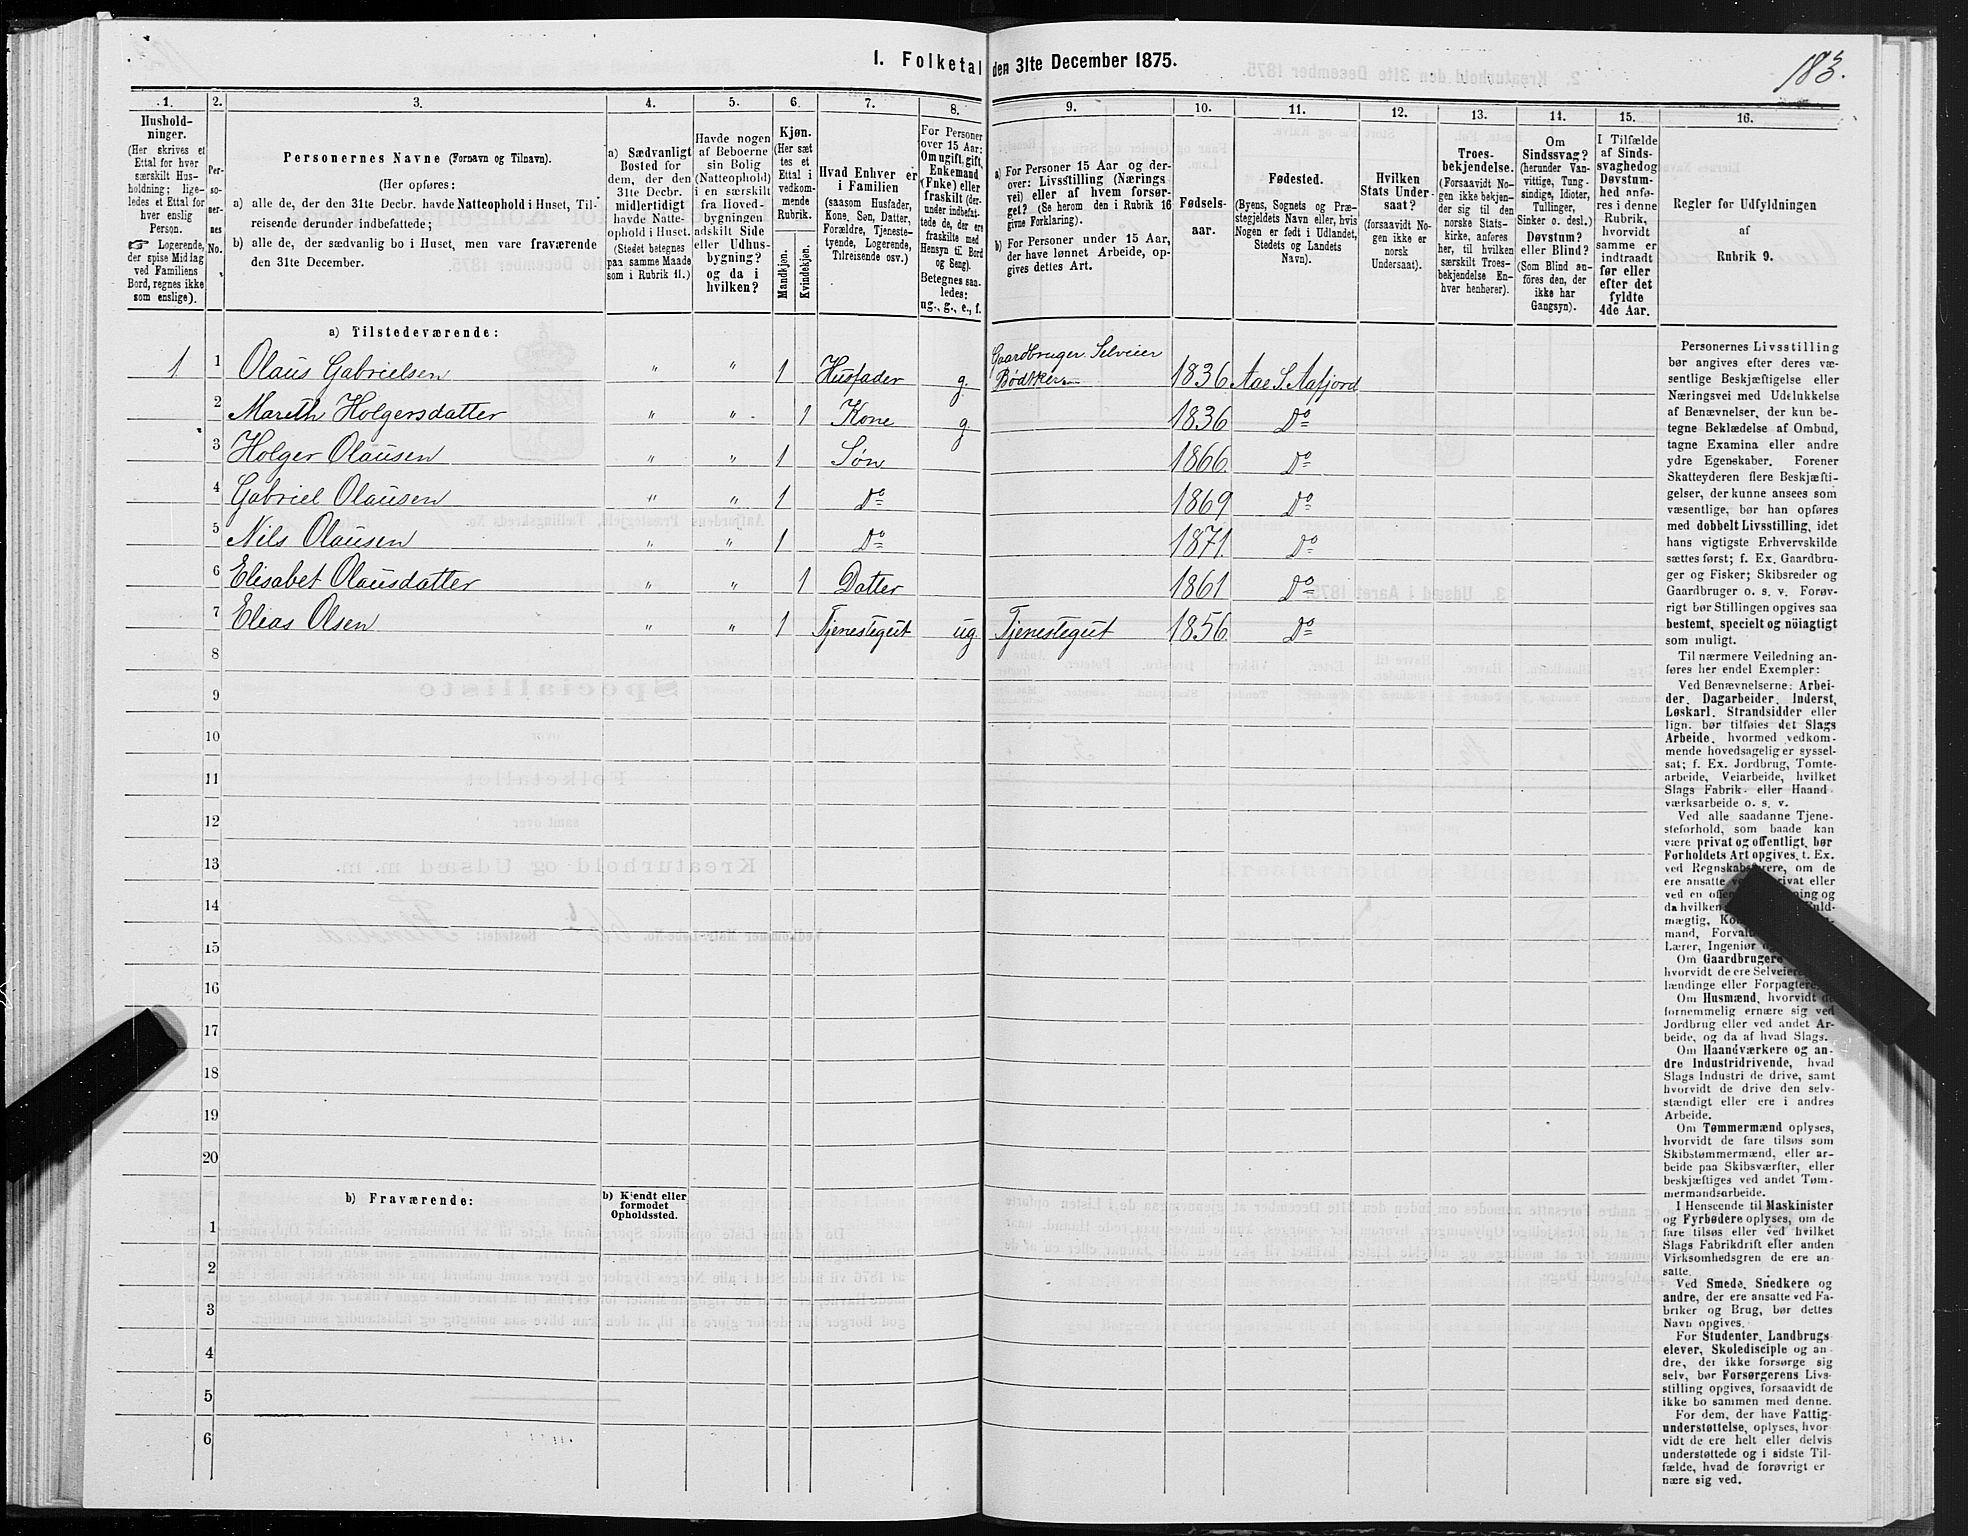 183.
1. Folketal den 31te December 1875.
1.
2.
3.
4.
5.
6.
7.
8.
9.
10.
11.
12.
13.
14.
15.
16.
Hushold-
ninger.
(Her skrives et
Ettal for hver
særskilt Hus-
holdning; lige-
ledes et Ettal for
hver enslig
Person.
☞ Logerende,
der spise Middag
ved Familiens
Bord, regnes ikke
som enslige).
Per-
so-
ner-
nes
No.
Personernes Navne (Fornavn og Tilnavn).
(Her opføres:
a) alle de, der den 31te Decbr. havde Natteophold i Huset, Til-
reisende derunder indbefattede;
b) alle de, der sædvanlig bo i Huset, men vare fraværende
den 31te December.
a) Sædvanligt
Bosted for
dem, der den
31te Decbr.
midlertidigt
havde Natte-
ophold i Huset.
(Stedet betegnes
paa samme Maade
som i Rubrik 11.)
Havde nogen
af Beboerne
sin Bolig
(Natteophold)
i en særskilt
fra Hoved-
bygningen
adskilt Side
eller Udhus-
bygning?
og da i
hvilken?
Kjøn.
(Her sæt
tes et
Ettal i
vedkom-
mende
Rubrik.
Mandkjøn.
Kvindekjøn.
Hvad Enhver er
i Familien
(saasom Husfader,
Kone, Søn, Datter,
Forældre, Tjeneste-
tyende, Logerende,
Tilreisende osv.)
For Personer
over 15 Aar:
Om ugift, gift,
Enkemand
(Enke) eller
fraskilt (der-
under indbefat-
tede de, der ere
fraskilte med
Hensyn til Bord
og Seng).
Betegnes saa-
ledes:
ug., g., e., f.
a) For Personer 15 Aar og der-
over: Livsstilling (Nærings
vei) eller af hvem forsør-
get? (Se herom den i Rubrik 16
givne Forklaring).
b) For Personer under 15 Aar,
der have lønnet Arbeide, op-
gives dettes Art.
Fødsels-
aar.
Fødested.
(Byens, Sognets og Præ-
stegjeldets Navn eller, hvis
Nogen er født i Udlandet,
Stedets og Landets
Navn).
Hvilken
Stats Under-
saat?
(forsaavidt No-
gen ikke er
norsk
Undersaat).
Troes-
bekjendelse.
(Forsaavidt No-
gen ikke bekjen-
der sig til den
norske Stats-
kirke, anføres
her, til hvilken
særskilt Troes-
bekjendelse En-
hver henhører).
Om
Sindssvag?
(herunder Van-
vittige, Tung-
sindige, Idioter,
Tullinger,
Sinker o. desl.)
Døvstum?
eller Blind?
(Som Blind an-
føres den, der
ikke har
Gangsyn).
I Tilfælde
af Sinds-
svaghed og
Døvstum-
hed anfø-
res i denne
Rubrik,
hvorvidt
samme er
indtraadt
før eller
efter det
fyldte
4de Aar.
Regler for Udfyldningen
af
Rubrik 9.
a) Tilstedeværende:
1 1 Olaus Gabrielsen " " 1 Husfader g. Gaardbruger Selveier
Bødker 1836 Aae S. Aafjord
2 Mareth Holgersdatter " " 1 Kone g. 1836 Do
3 Holger Olausen " " 1 Søn 1866 Do
4 Gabriel Olausen " " 1 Do 1869 Do
5 Nils Olausen " " 1 Do 1871. Do
6 Elisabet Olausdatter " " 1 Datter 1861 Do
7 Elias Olsen " " 1 Tjenestegut ug Tjenestegut 1856 Do
8
9
10
11
12
13
14
15
16
17
18
19
20
b) Fraværende:
b) Kjendt eller
formodet
Opholdssted.
1
2
3
4
5
6
Personernes Livsstilling
bør angives efter deres væ-
sentlige Beskjæftigelse eller
Næringsvei med Udelukkelse
af Benævnelser, der kun be-
tegne Beklædelse af Ombud,
tagne Examina eller andre
ydre Egenskaber. Forener
Skatteyderen flere Beskjæfti-
gelser, der kunne ansees som
væsentlige, bør han opføres
med dobbelt Livsstilling, idet
hans vigtigste Erhvervskilde
sættes først; f. Ex. Gaardbru-
ger og Fisker; Skibsreder og
Gaardbruger o. s. v. Forøv-
rigt bør Stillingen opgives saa
bestemt, specielt og nöiagtigt
som muligt.
Til nærmere Veiledning an-
føres her endel Exempler:
Ved Benævnelserne: Arbei-
der, Dagarbeider, Inderst,
Løskarl, Strandsidder eller
lign. bør tilføies det Slags
Arbeide, hvormed vedkom-
mende hovedsagelig er syssel-
sat; f. Ex. Jordbrug, Tomte-
arbeide, Veiarbeide, hvilket
Slags Fabrik- eller Haand
værksarbeide o. s. v.
Ved alle saadanne Tjene-
steforhold, som baade kan
være privat og offentligt, bør
Forholdets Art opgives, t. Ex.
ved Regnskabsførere, om de
ere ansatte ved privat eller
ved en ning og
da hvilken uld-
mægtig,
mand,
Lærer, Ingeniør
Om Gaardbrugere
hvorvidt de ere Selveiere,
lændinge eller Forpagtere.
Om Husmænd, hvorvidt de
fornemmelig ernære sig ved
Jordbrug eller ved andet Ar-
beide, og da af hvad Slags.
Om Haandværkere og an-
dre Industridrivende, hvad
Slags Industri de drive, samt
hvorvidt de drive den selv-
stændigt eller ere i andres
Arbeide.
Om Tømmermænd oplyses,
hvorvidt de fare tilsøs som
Skibstømmermænd, eller ar-
beide paa Skibsværfter, eller
beskjæftiges ved andet Tøm-
mermandsarbeide.
I Henseende til Maskinister
og Fyrbødere oplyses, om de
fare tilsøs eller ved hvilket
Slags Fabrikdrift eller anden
Virksomhedsgren de ere an-
satte.
Ved Smede, Snedkere og
andre, der ere ansatte ved Fa-
briker og Brug, bør dettes
Navn opgives.
For Studenter, Landbrugs
elever, Skoledisciple og an
dre, der ikke forsørge sig
selv, bør Forsørgerens Livs-
stilling opgives, forsaavidt de
ikke bo sammen med denne.
For dem, der have Fattig-
understøttelse, oplyses, hvor-
vidt de ere helt eller delvis
understøttede og i sidste Til-
fælde, hvad de forøvrigt er
nære sig ved.